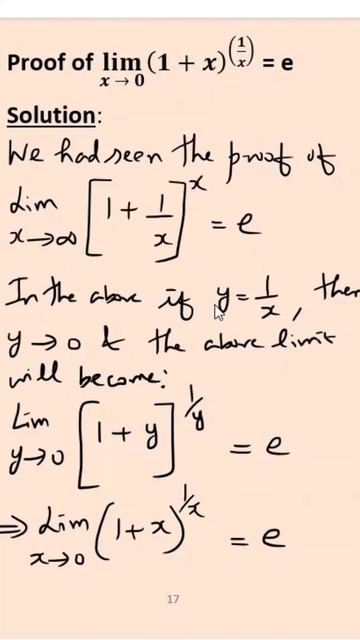 Proof of lim (1 + x)^(1/x) = e
x → 0
Solution:
We had seen the proof of
Lim [1 + 1/x]^x = e
x→∞
In the above if y = 1/x, then
y→0 & the above limit
will become:
Lim [1 + y]^1/y = e
y→0
⇒ Lim (1+x)^1/x = e
x→0
17